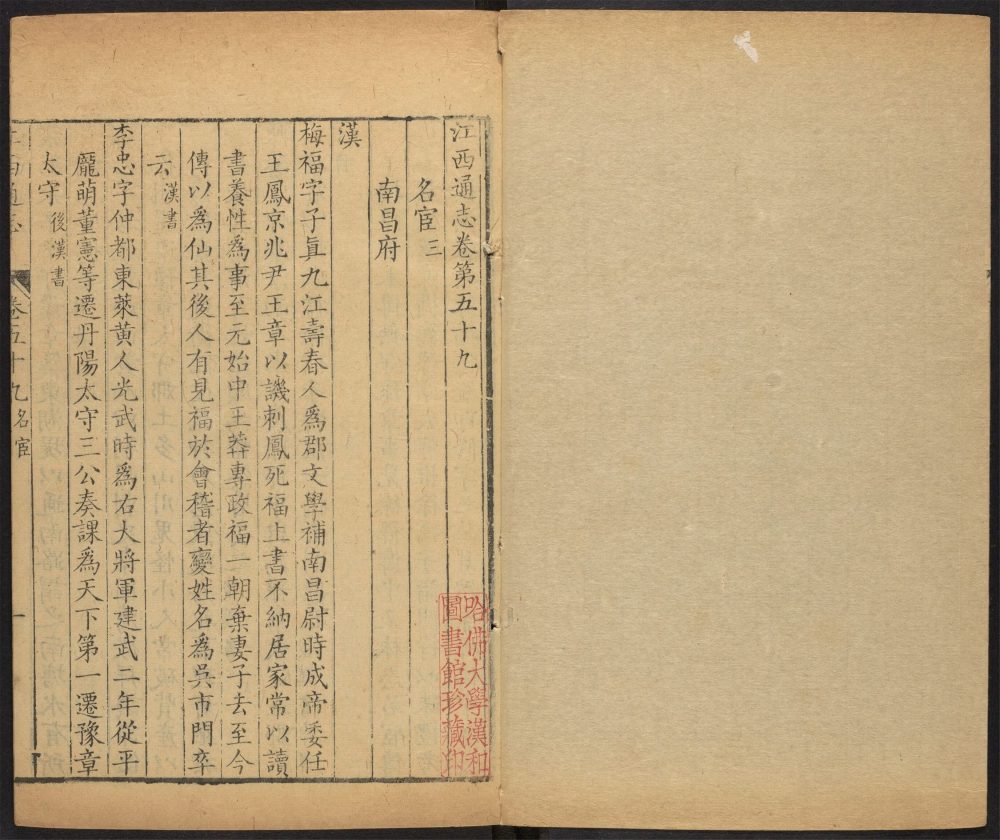 江西通志卷第五十九
名宦三
南昌府
漢
梅福字子眞九江壽春人爲郡文學補南昌尉時成帝委任
王鳳京兆尹王章以譏刺鳳死福上書不納居家常以讀
書養性爲事至元始中王莽專政福一朝棄妻子去至今
傳以爲仙其後人有見福於會稽者變姓名爲吳市門卒
云漢書
李忠字仲都東萊黃人光武時爲右大將軍建武二年從平
龐萌董憲等遷丹陽太守三公奏課爲天下第一遷豫章
太守後漢書
江西通志 卷五十九名宦 一
哈佛大學漢和
圖書館珍藏印